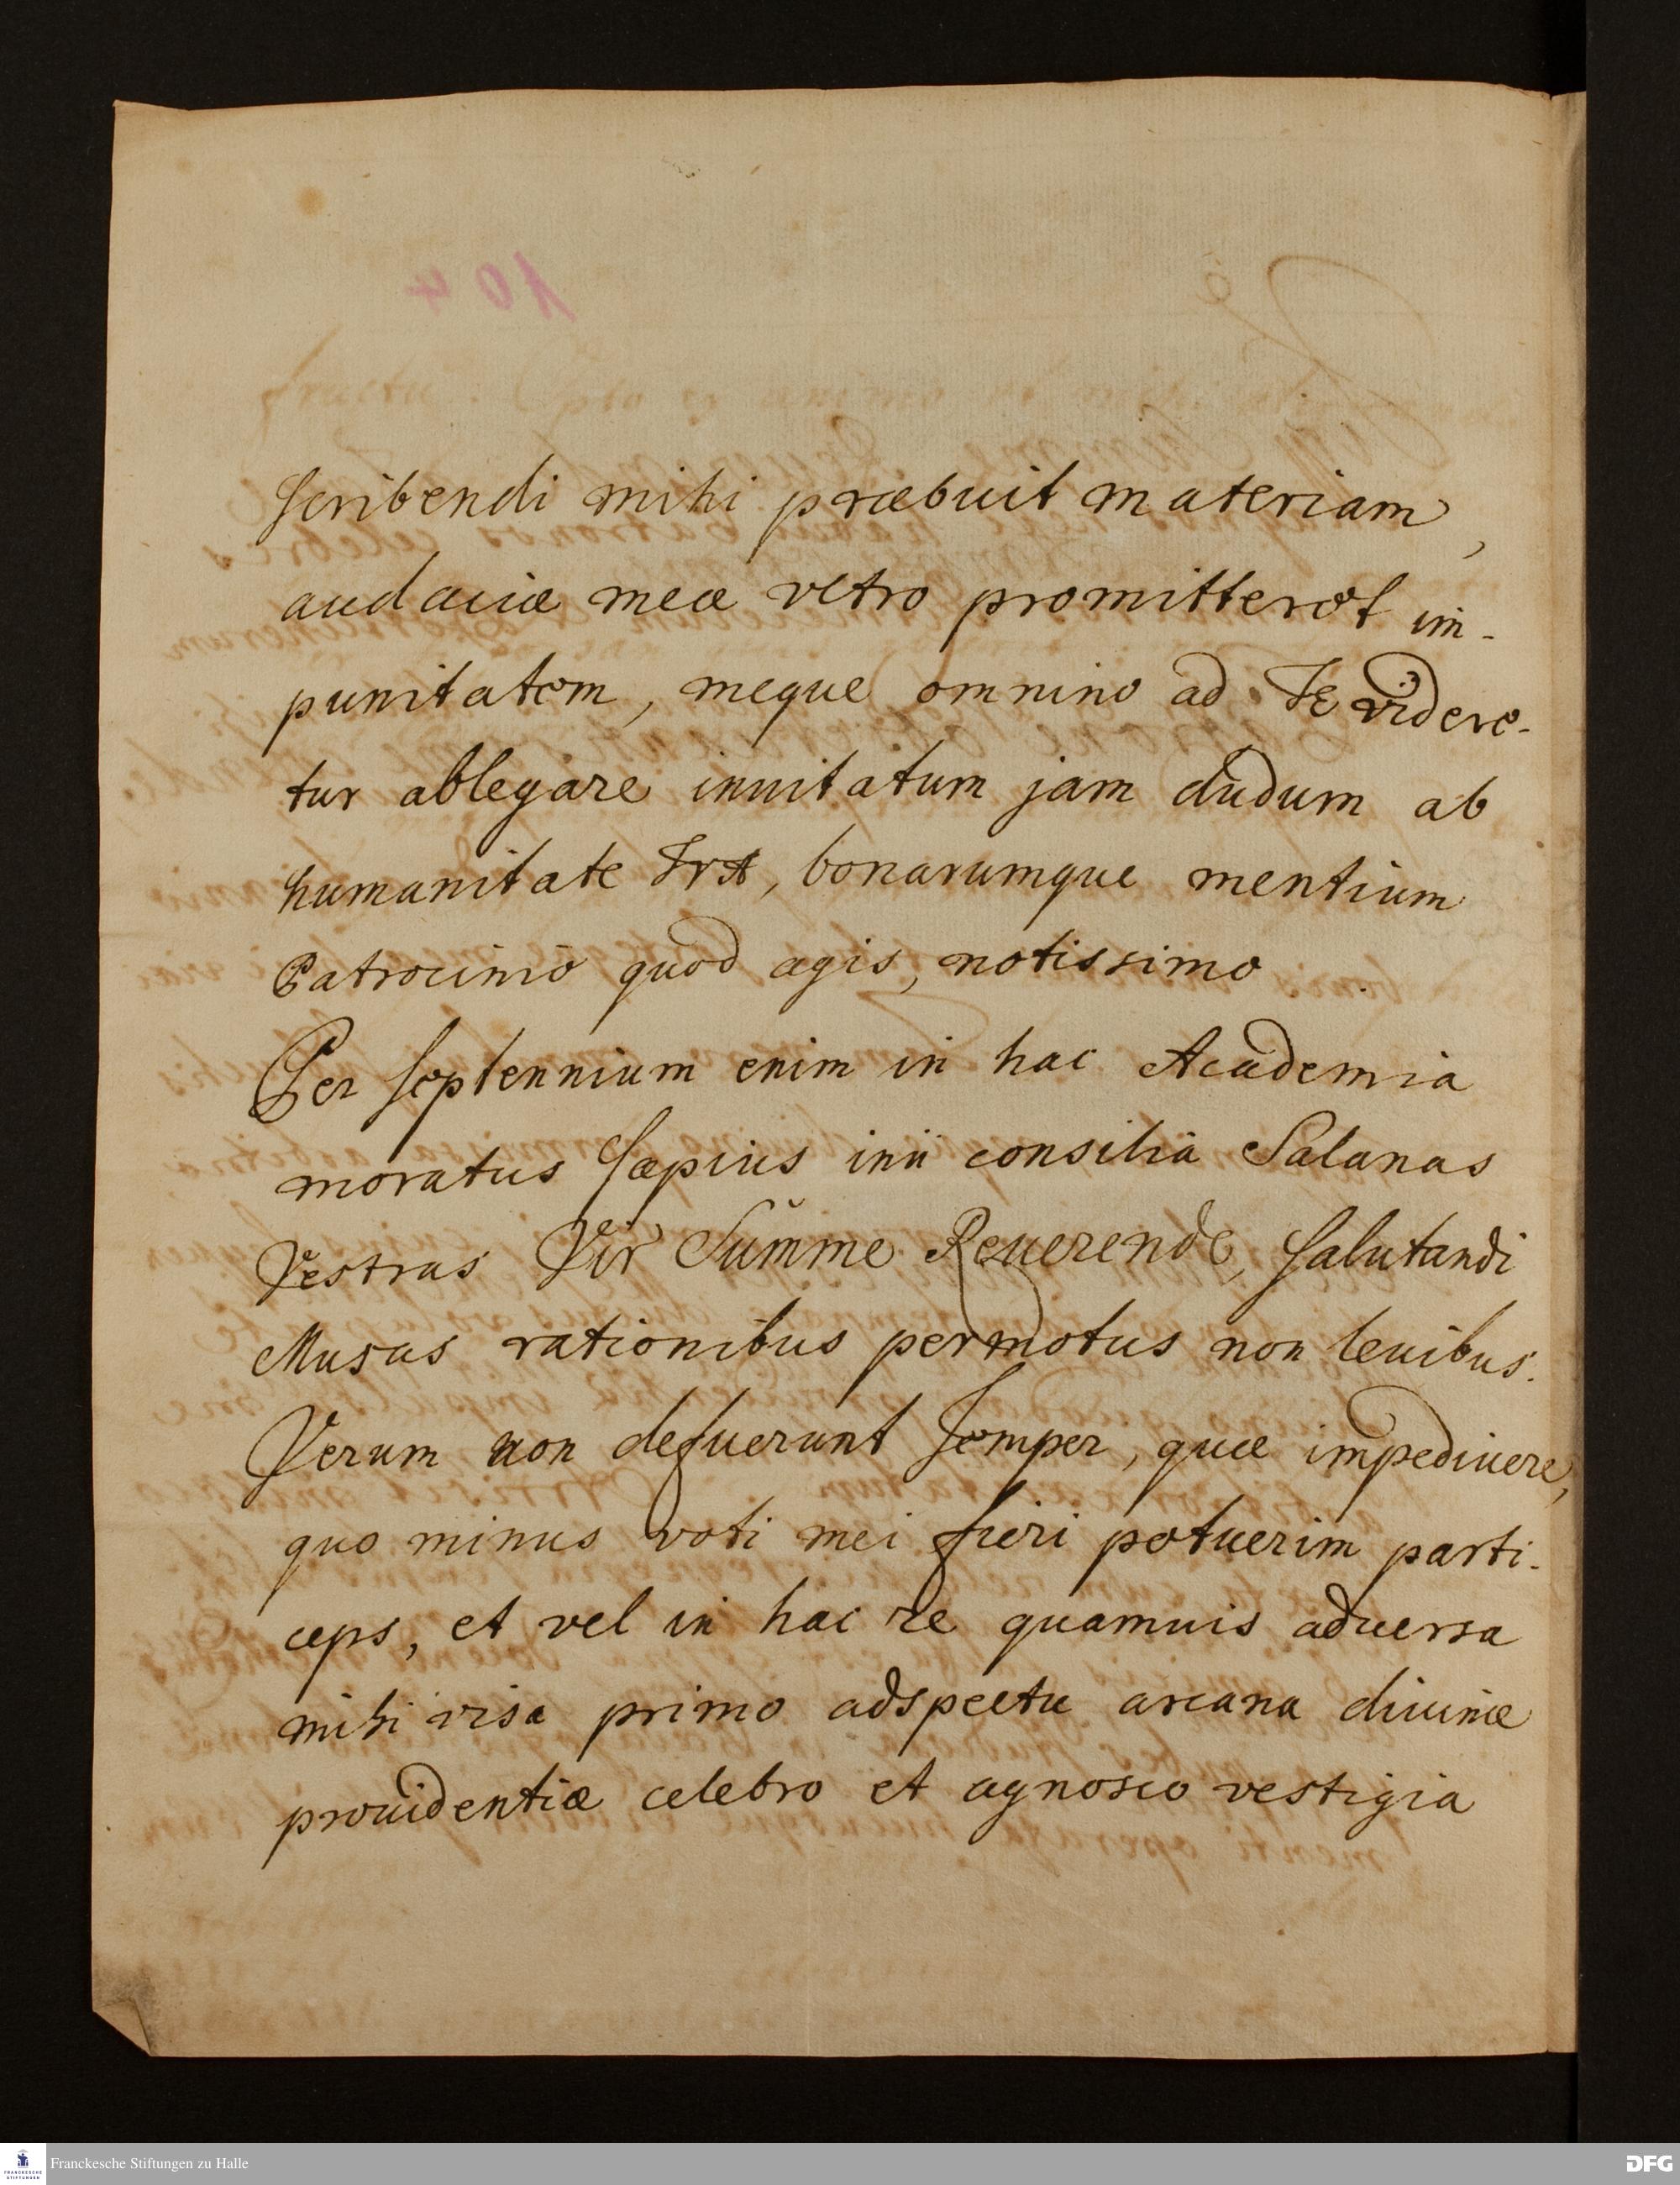 scribendi mihi præbuit materiam,
audaciæ meæ vltro promitteret im-
punitatem, meque omnino ad Te videre-
tur ablegare inuitatum jam dudum ab
humanitate TVA, bonarumque mentium
Patrocinio quod agis, notissimo
Per septennium enim in hac Academia
moratus sæpius inii consilia Salanas
Vestras Vir Summe Reuerende, salutandi
Musas rationibus permotus non leuibus.
Verum non defuerunt semper, quæ impediuere,
quo minus voti mei fieri potuerim parti-
ceps, et vel in hac re quamuis aduersa
mihi visa primo adspectu arcana diuinæ
prouidentiæ celebro et agnosco vestigia
Franckesche Stiftungen zu Halle
DFG